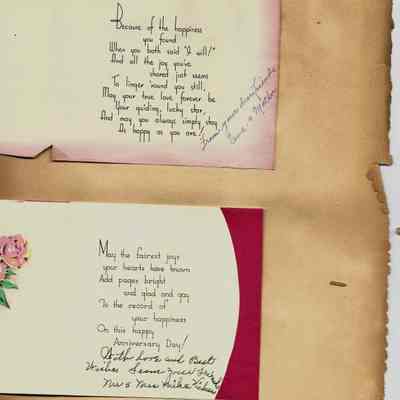 Because of the happiness
you found
When you both said "I will!"
And all the joy you've
shared just seems
To linger 'round you still,
May your true love forever be
Your guiding, lucky star,
And may you always simply stay
As happy as you are!
From your dear friends
May the fairest joys
your hearts have known
Add pages bright
and glad and gay
To the record of
your happiness
On this happy
Anniversary Day!
With Love and Best
Wishes from your Friends
Mr & Mrs Mike